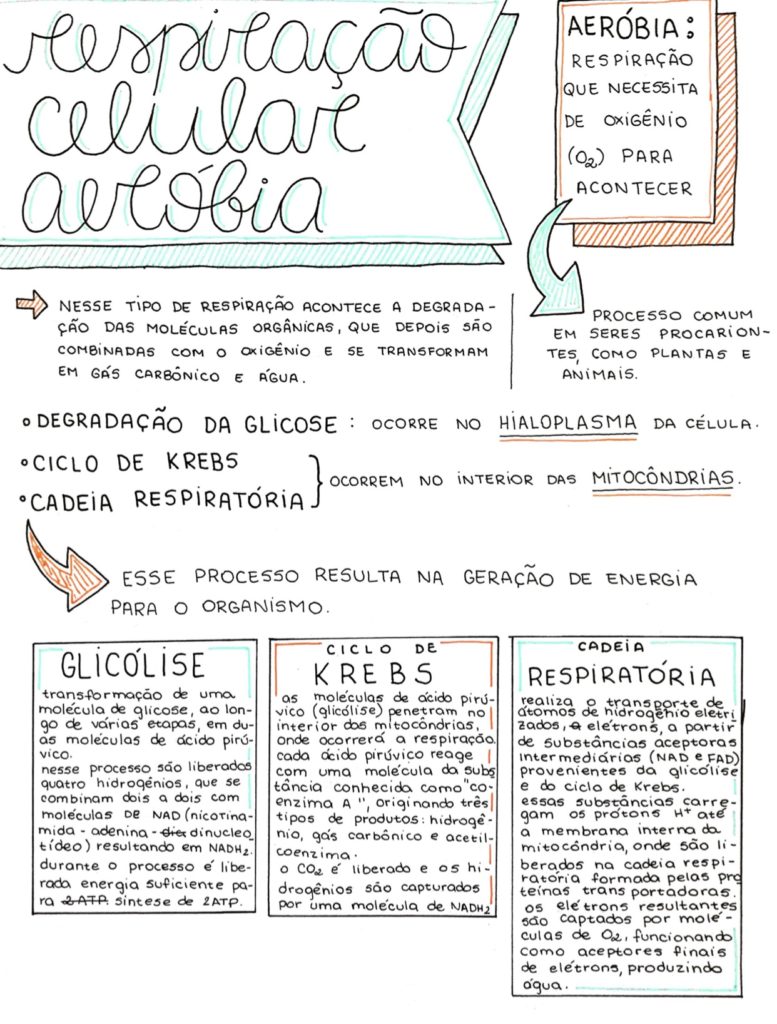 respiração
celular
aeróbia
AERÓBIA:
RESPIRAÇÃO
QUE NECESSITA
DE OXIGÊNIO
(O₂) PARA
ACONTECER
NESSE TIPO DE RESPIRAÇÃO ACONTECE A DEGRADA-
ÇÃO DAS MOLÉCULAS ORGÂNICAS, QUE DEPOIS SÃO
COMBINADAS COM O OXIGÊNIO E SE TRANSFORMAM
EM GÁS CARBÔNICO E ÁGUA.
PROCESSO COMUM
EM SERES PROCARION-
TES, COMO PLANTAS E
ANIMAIS.
• DEGRADAÇÃO DA GLICOSE: OCORRE NO HIALOPLASMA DA CÉLULA.
• CICLO DE KREBS
• CADEIA RESPIRATÓRIA
OCORREM NO INTERIOR DAS MITOCÔNDRIAS.
ESSE PROCESSO RESULTA NA GERAÇÃO DE ENERGIA
PARA O ORGANISMO.
GLICÓLISE
transformação de uma
molécula de glicose, ao lon-
go de várias etapas, em du-
as moléculas de ácido pirú-
vico.
nesse processo são liberados
quatro hidrogênios, que se
combinam dois a dois com
moléculas DE NAD (nicotina-
mida - adenina - dinucleo
tídeo) resultando em NADH₂.
durante o processo é libe-
rada energia suficiente pa-
ra 2ATP síntese de 2ATP.
CICLO DE
KREBS
as moléculas de ácido pirú-
vico (glicólise) penetram no
interior dos mitocôndrias,
onde ocorrerá a respiração.
cada ácido pirúvico reage
com uma molécula da subs
tância conhecida como "co-
enzima A", originando três
tipos de produtos: hidrogê-
nio, gás carbônico e acetil-
coenzima.
o CO₂ é liberado e os hi-
drogênios são capturados
por uma molécula de NADH₂
CADEIA
RESPIRATÓRIA
realiza o transporte de
átomos de hidrogênio eletri
zados, e elétrons, a partir
de substâncias aceptoras
intermediárias (NAD e FAD)
provenientes da glicólise
e do ciclo de Krebs.
essas substâncias carre-
gam os prótons H⁺ até
a membrana interna da
mitocôndria, onde são li-
berados na cadeia respi-
ratória formada pelas pro
teínas transportadoras.
os elétrons resultantes
são captados por molé-
culas de O₂, funcionando
como aceptores finais
de elétrons, produzindo
água.